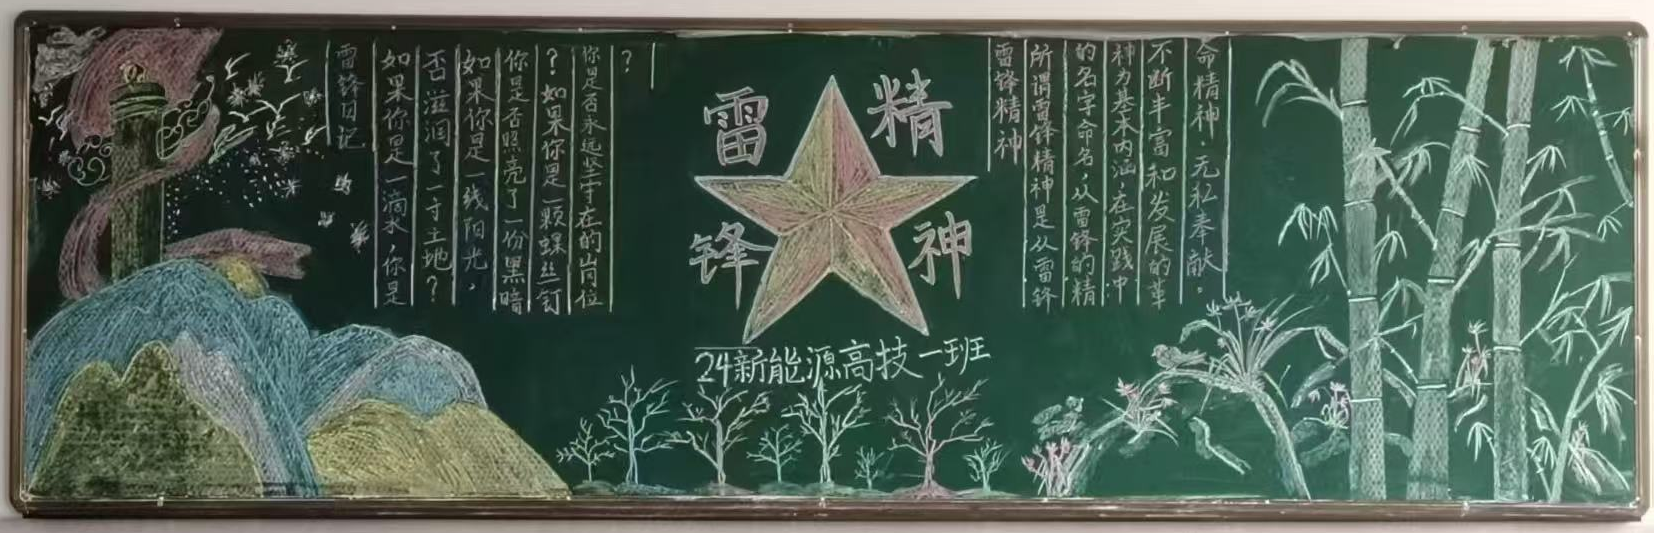 雷锋日记
如果你是一滴水,你是
否滋润了一寸土地?
如果你是一线阳光,
你是否照亮了一份黑暗
?如果你是一颗螺丝钉
你是否永远坚守在的岗位
?
雷锋
精神
24新能源高技一班
雷锋精神
所谓雷锋精神是从雷锋
的名字命名,从雷锋的精
神为基本内涵,在实践中
不断丰富和发展的革
命精神,无私奉献。